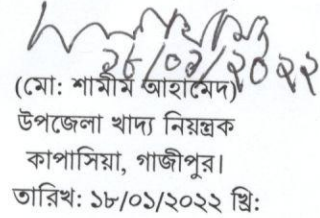 ১৮/০১/২০২২
(মো: শামীম আহামেদ)
উপজেলা খাদ্য নিয়ন্ত্রক
কাপাসিয়া, গাজীপুর।
তারিখ: ১৮/০১/২০২২ খ্রি: